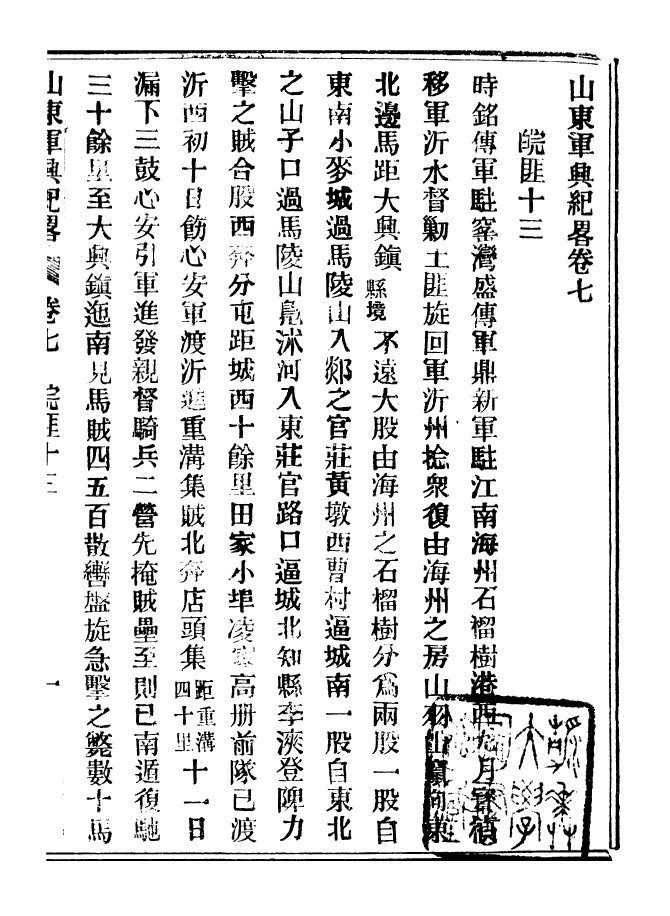 山東軍興紀畧卷七
皖匪十三
時銘傳軍駐窰灣盛傳軍鼎新軍駐江南海州石榴樹港西九月
移軍沂水督勦土匪旋回軍沂州捻衆復由海州之房山
北邊馬距大興鎮縣境不遠大股由海州之石榴樹分爲兩股一股自
東南小麥城過馬陵山入郯之官莊黃墩西曹村逼城南一股自東北
之山子口過馬陵山鳧沭河入東莊官路口逼城北知縣李浹登陴力
擊之賊合股西奔分屯距城西十餘里田家小埠凌家高册前隊已渡
沂酉初十日飭心安軍渡沂進重溝集賊北奔店頭集距重溝四十里十一日
漏下三鼓心安引軍進發親督騎兵二營先掩賊壘至則已南遁復馳
三十餘里至大興鎮迤南見馬賊四五百散轡盤旋急擊之斃數十馬
山東軍興紀畧 卷七 皖匪十三 一